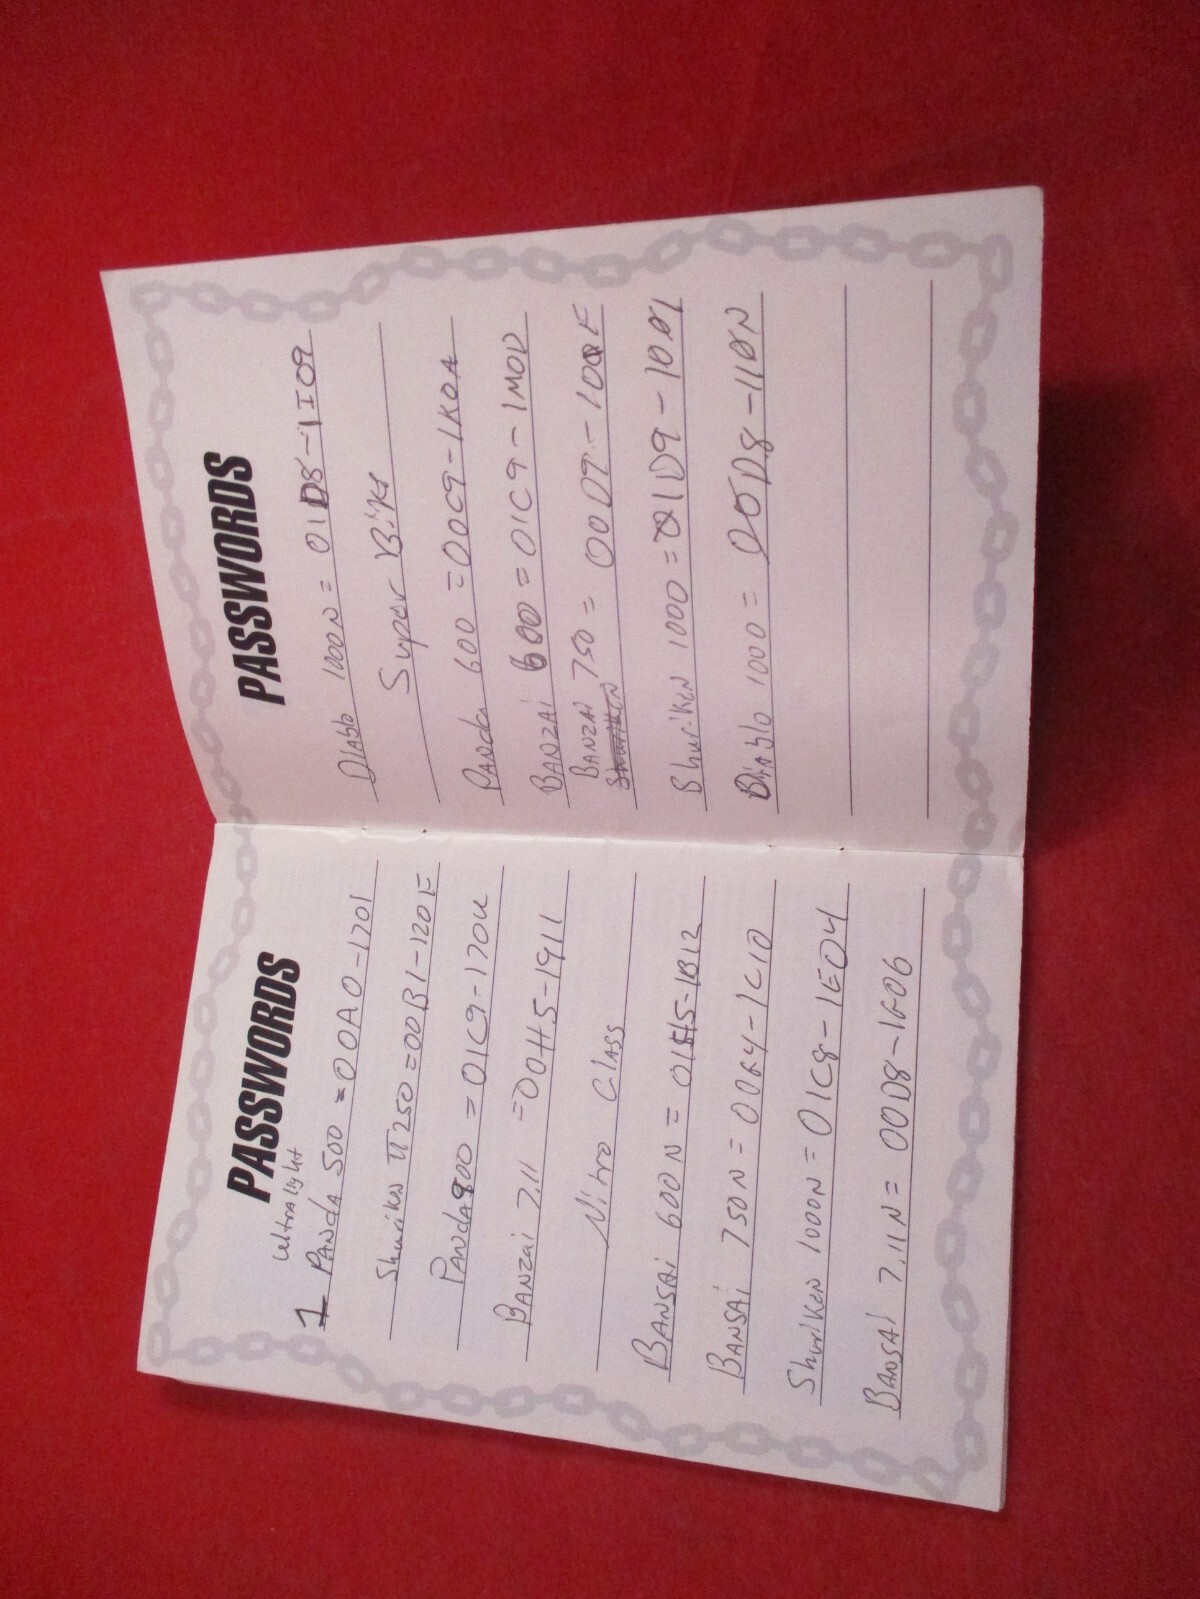 PASSWORDS
Ultra light
1 PANdA 500 = 00A0-1701
Shuriken TT250 = 00B1-120E
PANdA 900 = 01C9-170U
BANZai 7.11 = 00H5-1911
Nitro Class
BANSAi 600N = 01H5-1B12
BANSAi 750N = 00G4-1C10
Shuriken 1000N = 01C8-1E04
BANSAi 7.11N = 00D8-1G06
PASSWORDS
DiAblo 1000N = 01D8-1I09
Super Bike
PANda 600 = 00C9-1K0A
BANZAi 600 = 01C9-1M0D
BANZAi 750 = 00D9-100E
Shuriken
Shuriken 1000 = 01D9-1001
DiAblo 1000 = 00D8-110N